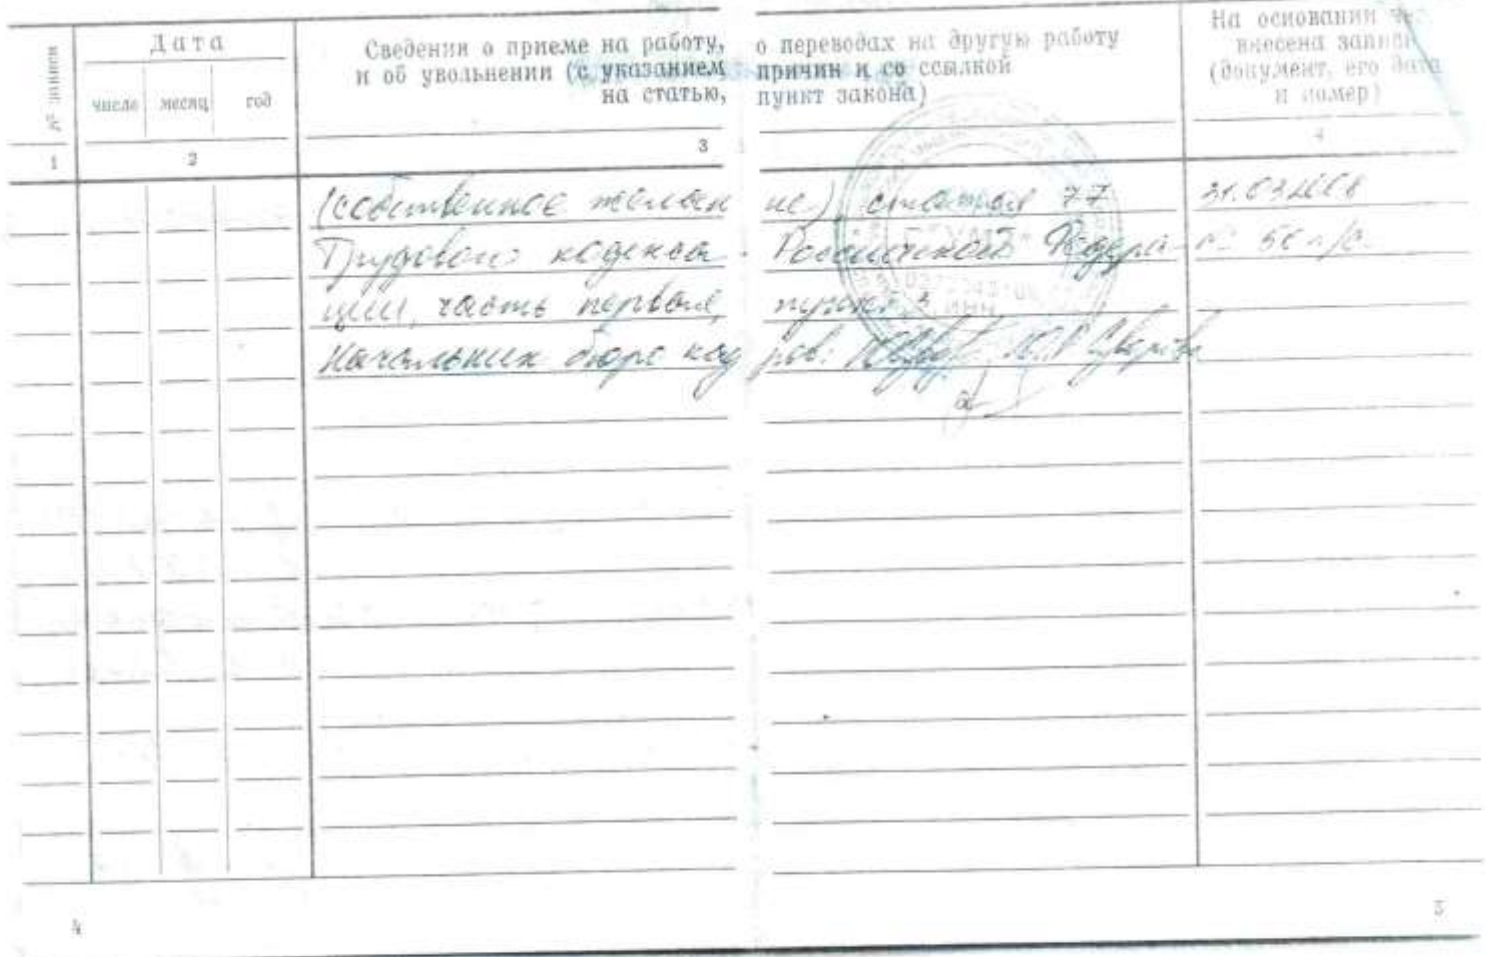 № записи
Дата
число месяц год
Сведения о приеме на работу, о переводах на другую работу
и об увольнении (с указанием причин и со ссылкой
на статью, пункт закона)
На основании чего
внесена запись
(документ, его дата
и номер)
1 2 3 4
(собственное желание), статья 77 31.03.2008
Трудового кодекса Российской Федера- № 50 л/с
ции, часть первая, пункт 3
Начальник бюро кадров:
ИНН
4 5